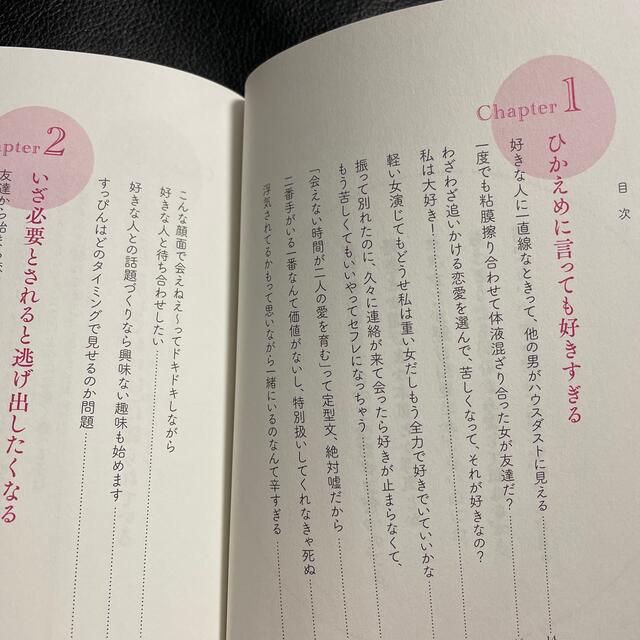 目次
Chapter 1
ひかえめに言っても好きすぎる
好きな人に一直線なときって、他の男がハウスダストに見える
一度でも粘膜擦り合わせて体液混ざり合った女が友達だ?
わざわざ追いかける恋愛を選んで、苦しくなって、それが好きなの?
私は大好き!
軽い女演じてもどうせ私は重い女だしもう全力で好きでいていいかな
振って別れたのに、久々に連絡が来て会ったら好きが止まらなくて、
もう苦しくてもいいやってセフレになっちゃう
「会えない時間が二人の愛を育む」って定型文、絶対嘘だから
二番手がいる一番なんて価値がないし、特別扱いしてくれなきゃ死ぬ
浮気されてるかもって思いながら一緒にいるのなんて辛すぎる
こんな顔面で会えねえ〜ってドキドキしながら
好きな人と待ち合わせしたい
好きな人との話題づくりなら興味ない趣味も始めます
すっぴんはどのタイミングで見せるのか問題
apter 2
いざ必要とされると逃げ出したくなる
友達から始ま